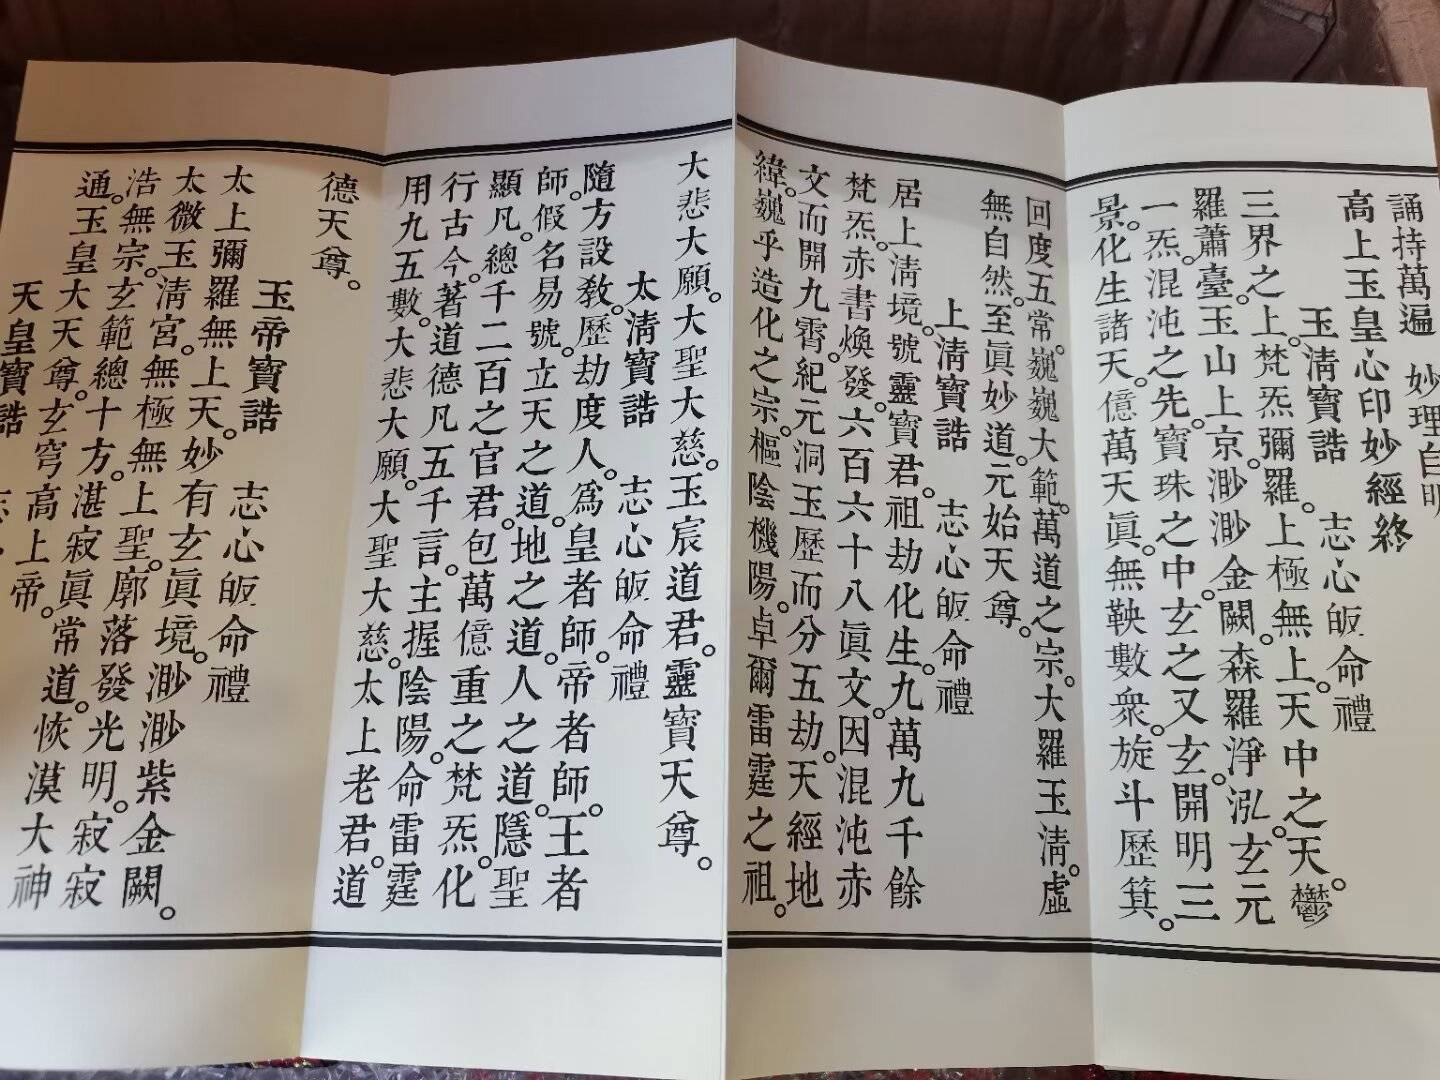 誦持萬遍 妙理自明
高上玉皇心印妙經終
玉淸寶誥 志心皈命禮
三界之上。梵炁彌羅。上極無上。天中之天。鬱
羅蕭臺。玉山上京。渺渺金闕。森羅淨泓。玄元
一炁。混沌之先。寶珠之中。玄之又玄。開明三
景。化生諸天。億萬天眞。無鞅數衆。旋斗歷箕。
回度五常。巍巍大範。萬道之宗。大羅玉淸。虛
無自然。至眞妙道。元始天尊。
上淸寶誥 志心皈命禮
居上淸境。號靈寶君。祖劫化生。九萬九千餘
梵炁。赤書煥發。六百六十八眞文。因混沌赤
文而開九霄。紀元洞玉歷而分五劫。天經地
緯。巍乎造化之宗。樞陰機陽。卓爾雷霆之祖。
大悲大願。大聖大慈。玉宸道君。靈寶天尊。
太淸寶誥 志心皈命禮
隨方設敎。歷劫度人。爲皇者師。帝者師。王者
師。假名易號。立天之道。地之道。人之道。隱聖
顯凡。總千二百之官君。包萬億重之梵炁。化
行古今。著道德凡五千言。主握陰陽。命雷霆
用九五數。大悲大願。大聖大慈。太上老君。道
德天尊。
玉帝寶誥 志心皈命禮
太上彌羅無上天。妙有玄眞境。渺渺紫金闕。
太微玉淸宮。無極無上聖。廓落發光明。寂寂
浩無宗。玄範總十方。湛寂眞常道。恢漠大神
通。玉皇大天尊。玄穹高上帝。
天皇寶誥 志心